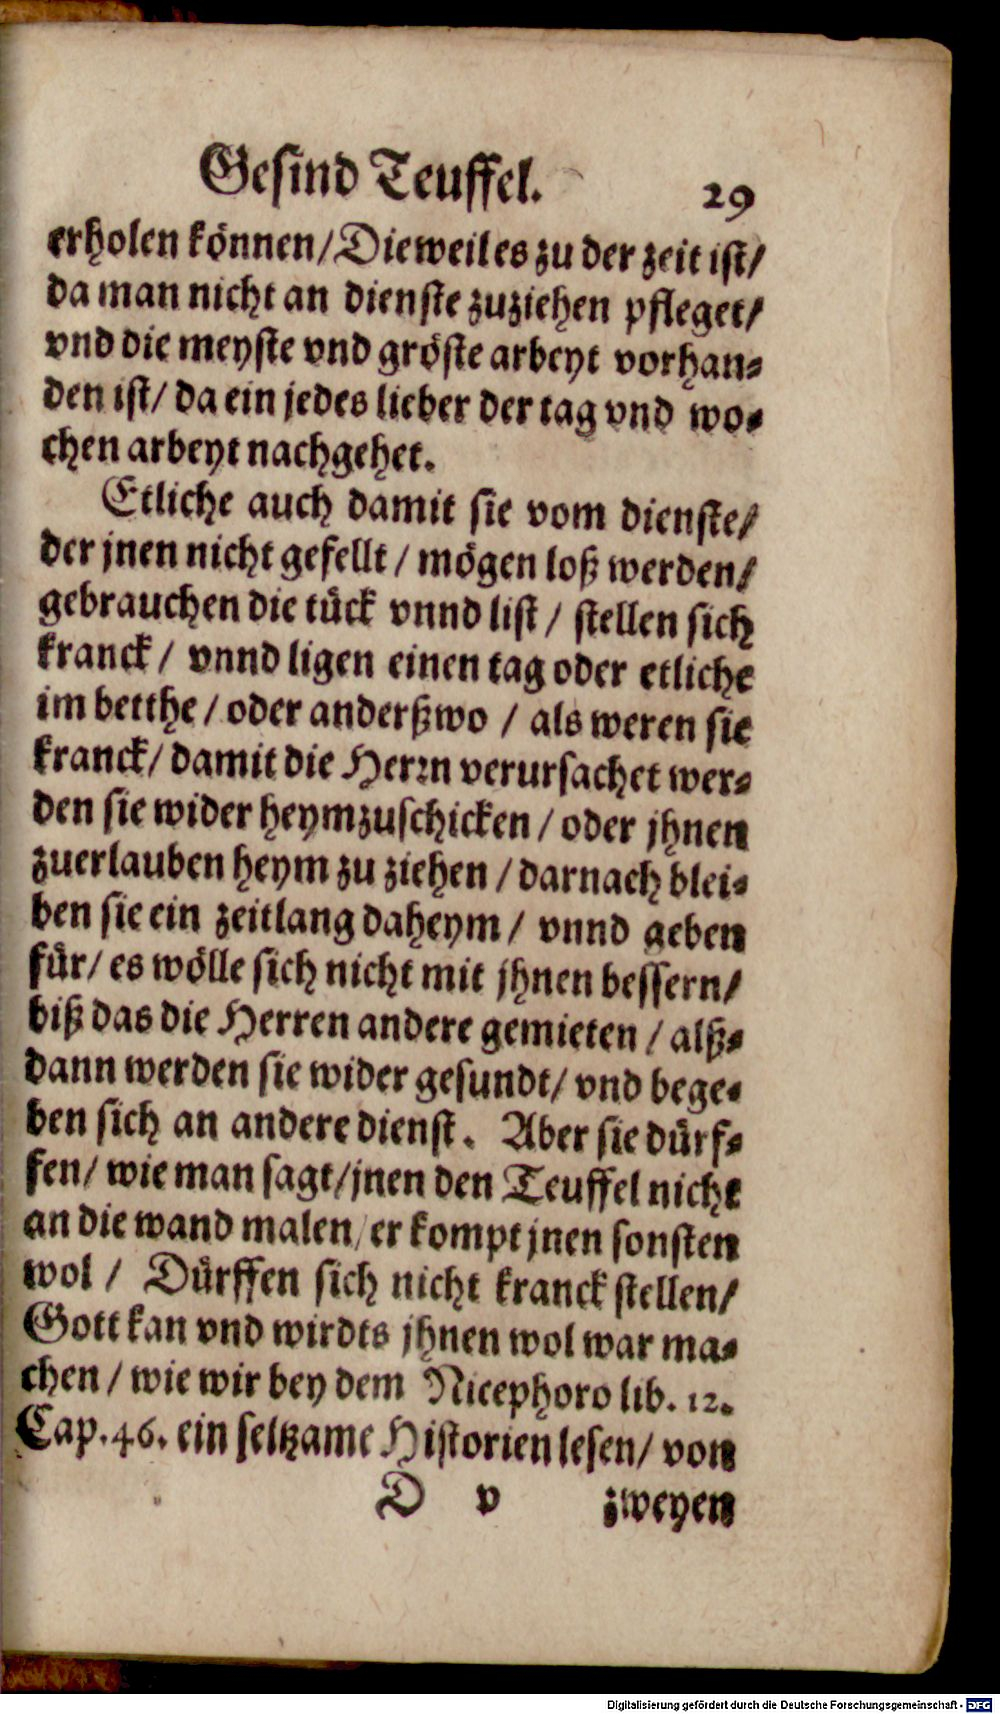 Gesind Teuffel. 29
erholen können/ Dieweil es zu der zeit ist/
da man nicht an dienste zuziehen pfleget/
vnd die meyste vnd gröste arbeyt vorhan-
den ist/ da ein jedes lieber der tag vnd wo-
chen arbeyt nachgehet.
Etliche auch damit sie vom dienste/
der jnen nicht gefellt / mögen loß werden/
gebrauchen die tück vnnd list / stellen sich
kranck / vnnd ligen einen tag oder etliche
im betthe / oder anderßwo / als weren sie
kranck/ damit die Herrn verursachet wer-
den sie wider heymzuschicken / oder jhnen
zuerlauben heym zu ziehen / darnach blei-
ben sie ein zeitlang daheym / vnnd geben
für/ es wölle sich nicht mit jhnen bessern/
biß das die Herren andere gemieten / alß-
dann werden sie wider gesundt/ vnd bege-
ben sich an andere dienst. Aber sie dürf-
fen/ wie man sagt/ jnen den Teuffel nicht
an die wand malen/ er kompt jnen sonsten
wol / Dürffen sich nicht kranck stellen/
Gott kan vnd wirdts jhnen wol war ma-
chen / wie wir bey dem Nicephoro lib. 12.
Cap. 46. ein seltzame Historien lesen/ von
D v zweyen
Digitalisierung gefördert durch die Deutsche Forschungsgemeinschaft - DFG